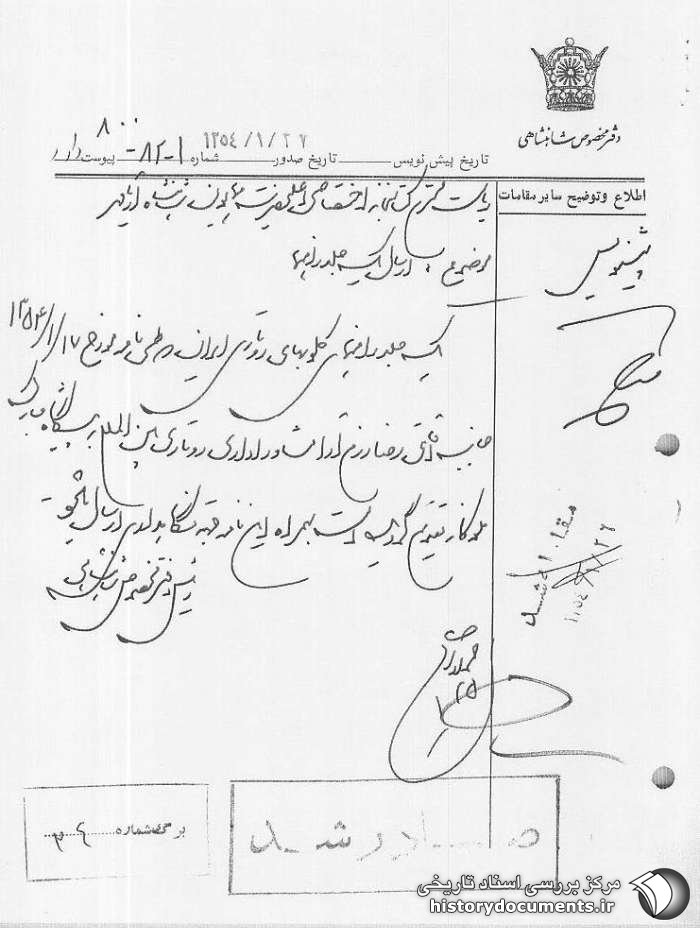 دفتر مخصوص شاهنشاهی
۸۰۰
۱۳۵۴/۱/۲۷
تاریخ پیش نویس تاریخ صدور شماره ۱-۸۲- پیوست دارد
اطلاع و توضیح سایر مقامات
ریاست محترم کتابخانه اختصاصی اعلیحضرت همایون شاهنشاه آریامهر
موضوع: ارسال یک جلد راهنما
پیشنویس
یک جلد راهنمای کلوبهای روتاری ایران که طی نامه مورخ ۱۳۵۴/۱/۱۷
جانب آقای رضا رزم آرا مشاور اداری روتاری بین المللی به پیشگاه مبارک
ملوکانه تقدیم گردیده است به همراه این نامه جهت نگاهداری ارسال میشود
رئیس دفتر مخصوص شاهنشاهی
مقابله شد
۱۳۵۴/۱/۲۶
۱/۲۵
صادر شد
برگ شماره ۳۰۴
مرکز بررسی اسناد تاریخی
historydocuments.ir